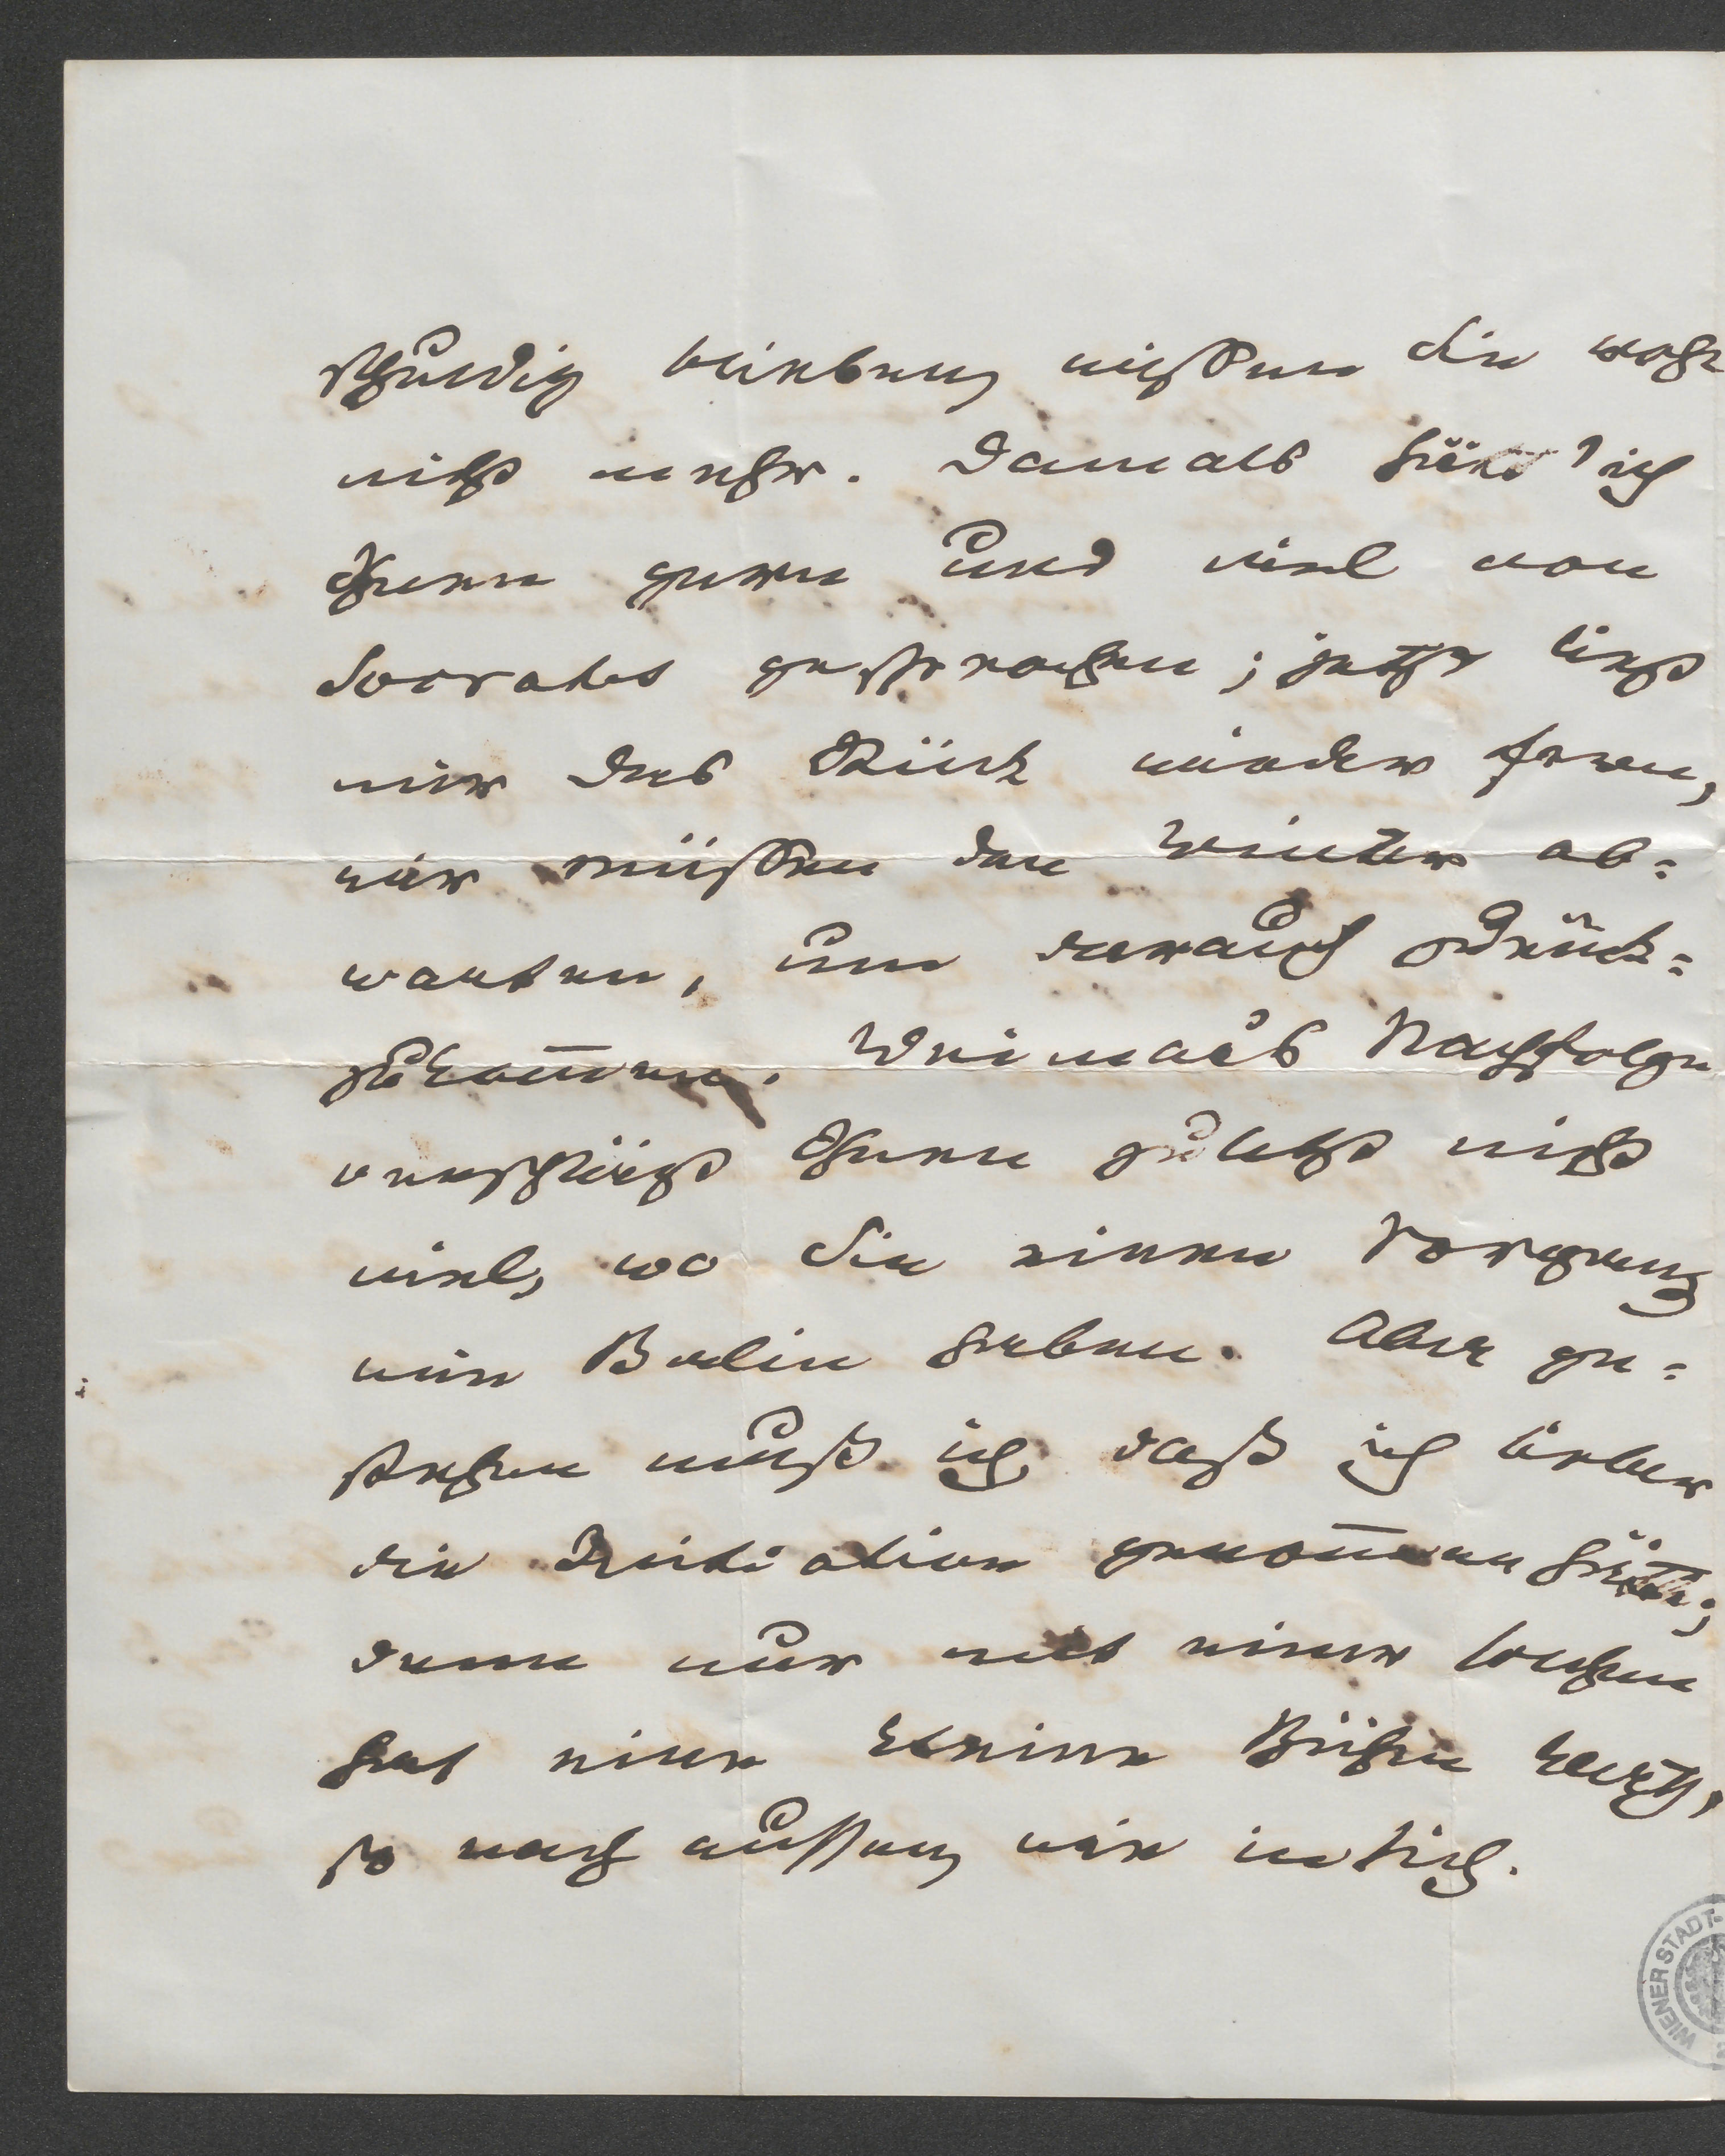 schuldig blieben, wissen Sie wohl
nicht mehr. Damals hätt' ich
Ihnen gern und viel von
Socrates gesprochen; jetzt liegt
mir das Stück wieder fern,
wir müssen den Winter ab=
warten, um darauf zurück=
zukom̅en. Weimar's Nachfolge
verschlägt Ihnen zuletzt nicht
viel, wo Sie einen Vorgang
wie Berlin haben. Aber ge=
stehen muß ich, daß ich lieber
die Initiative genom̅en hätte;
denn nur mit einer solchen
hat eine kleine Bühne Werth,
so nach aussen, wie in sich.
WIENER STADT-